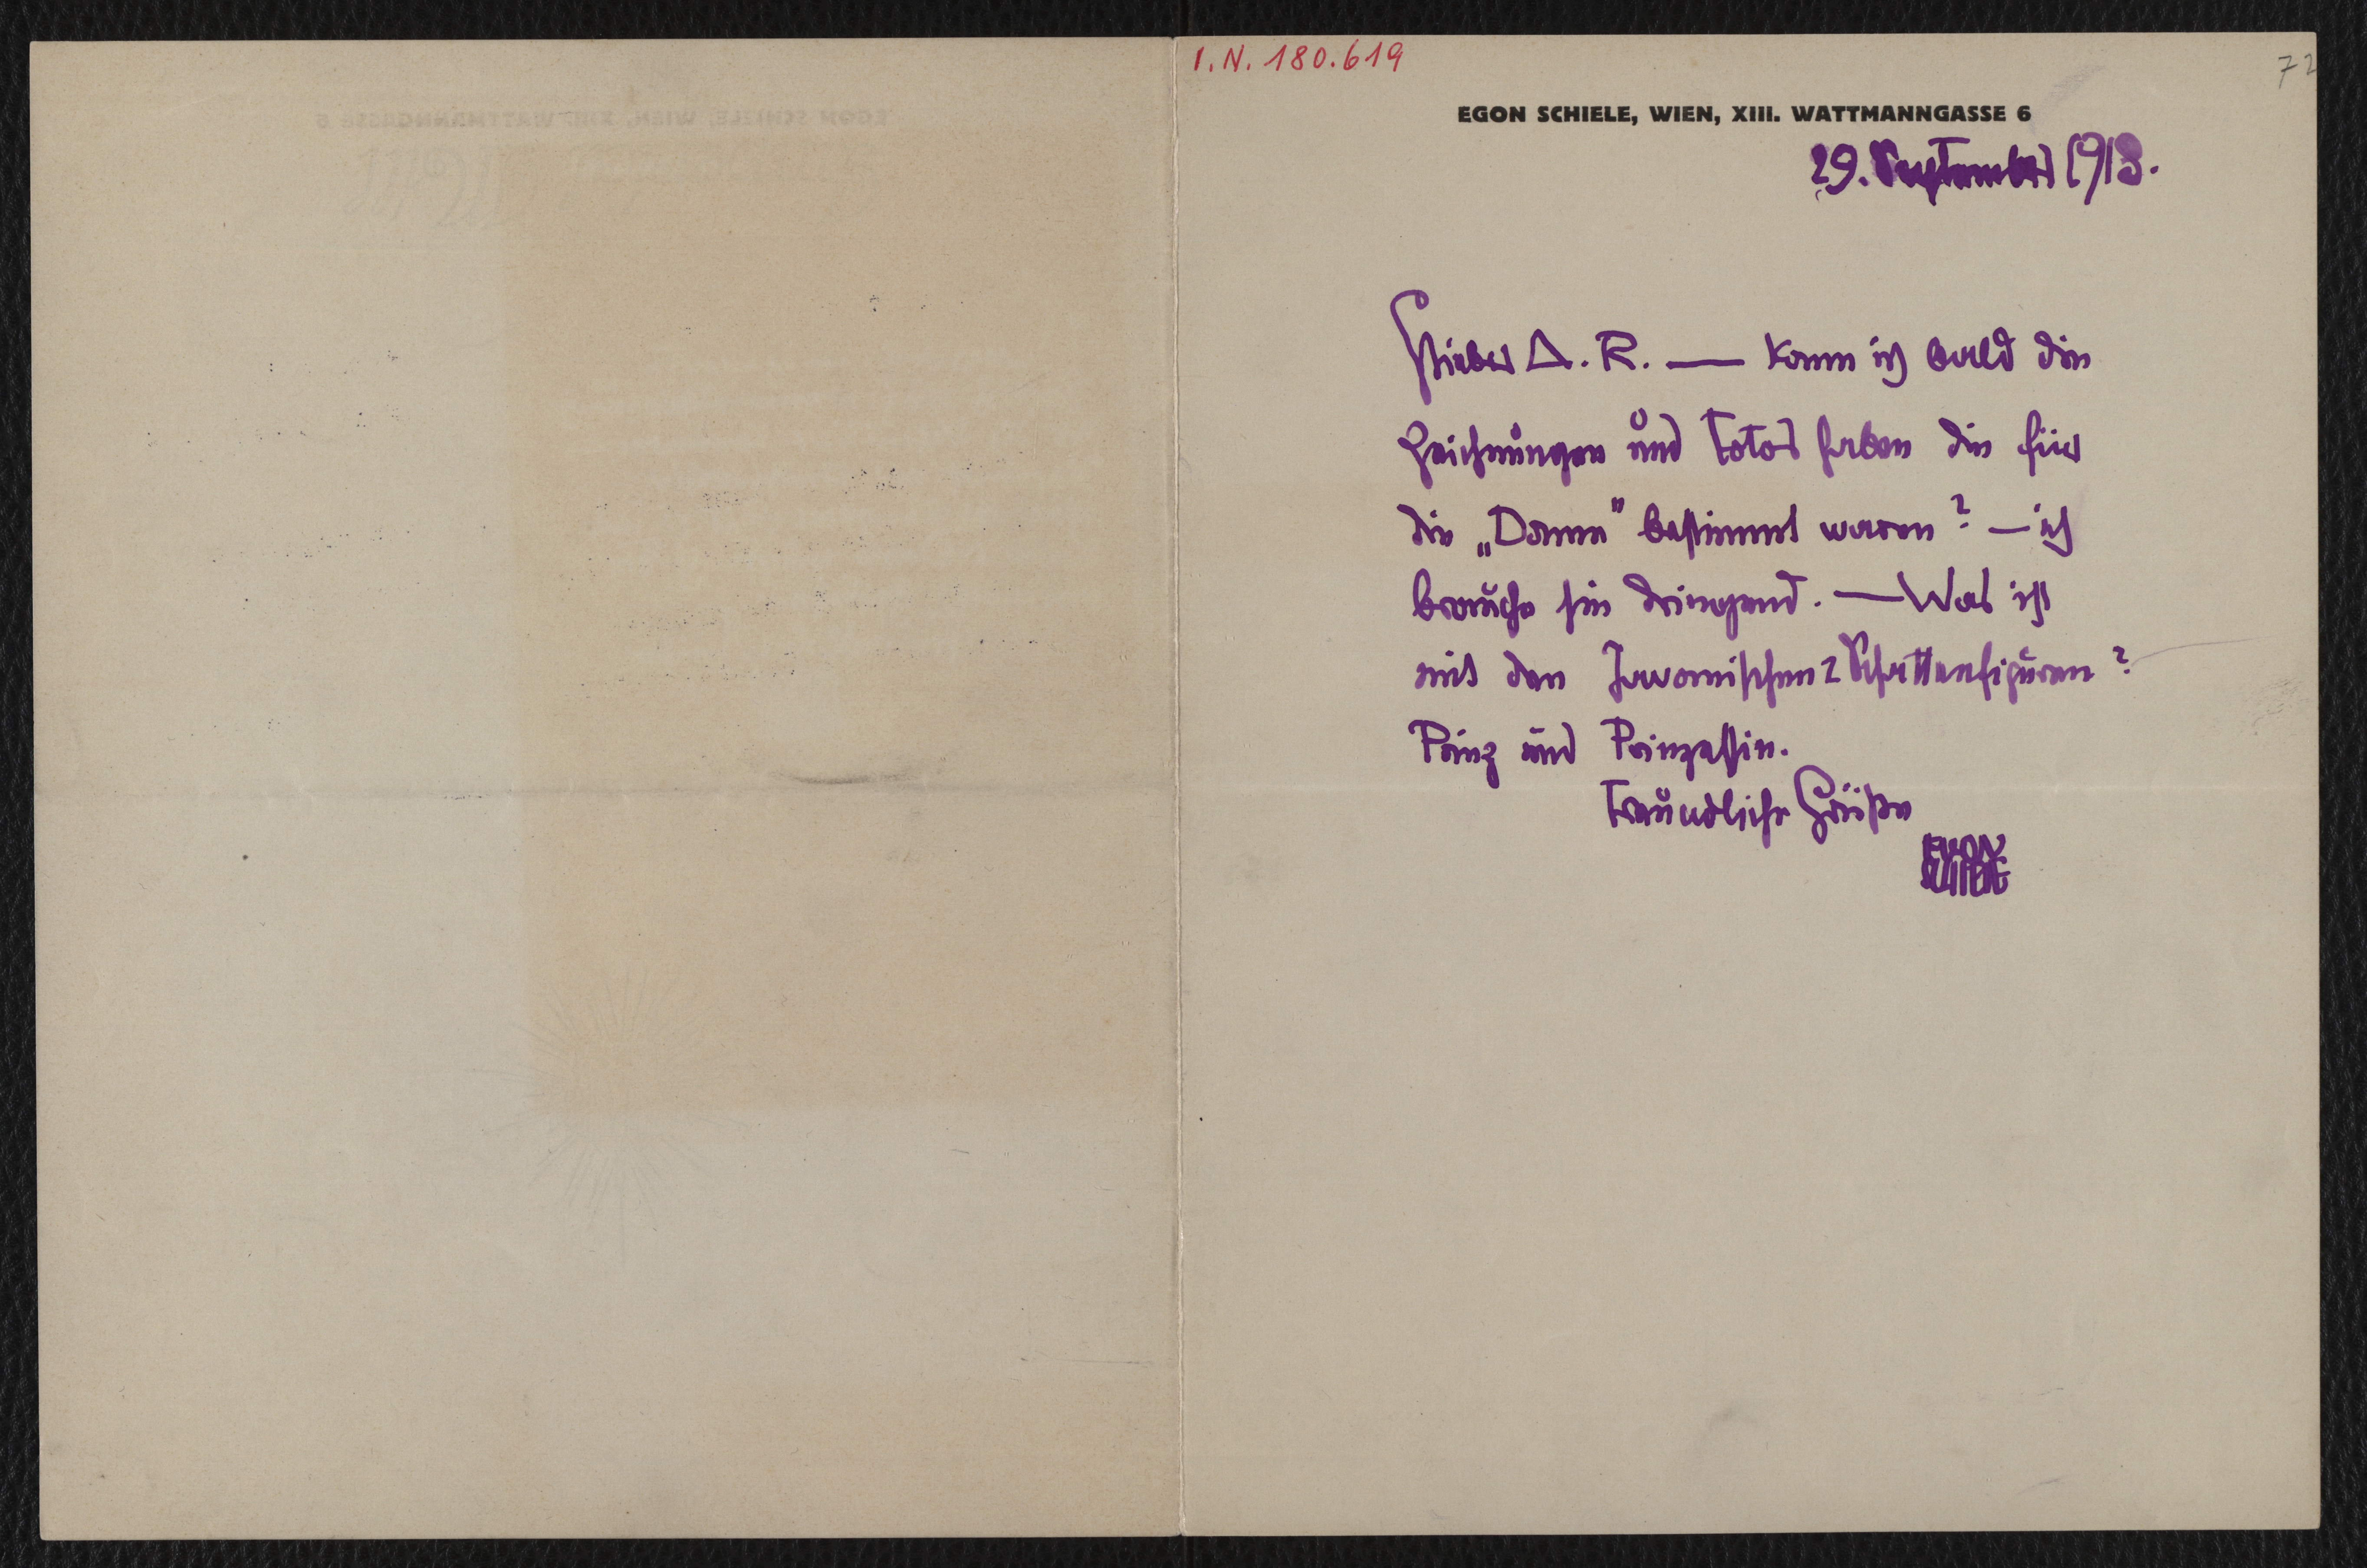 I.N. 180.619
72
EGON SCHIELE, WIEN, XIII. WATTMANNGASSE 6
29. September 1918.
Lieber A. R. — kann ich bald die
Zeichnungen und Fotos haben die für
die „Dame“ bestimmt waren? — ich
brauche sie dringend. — Was ist
mit den Javanischen 2 Schattenfiguren?
Prinz und Prinzessin.
Freundliche Grüße
EGON
SCHIELE